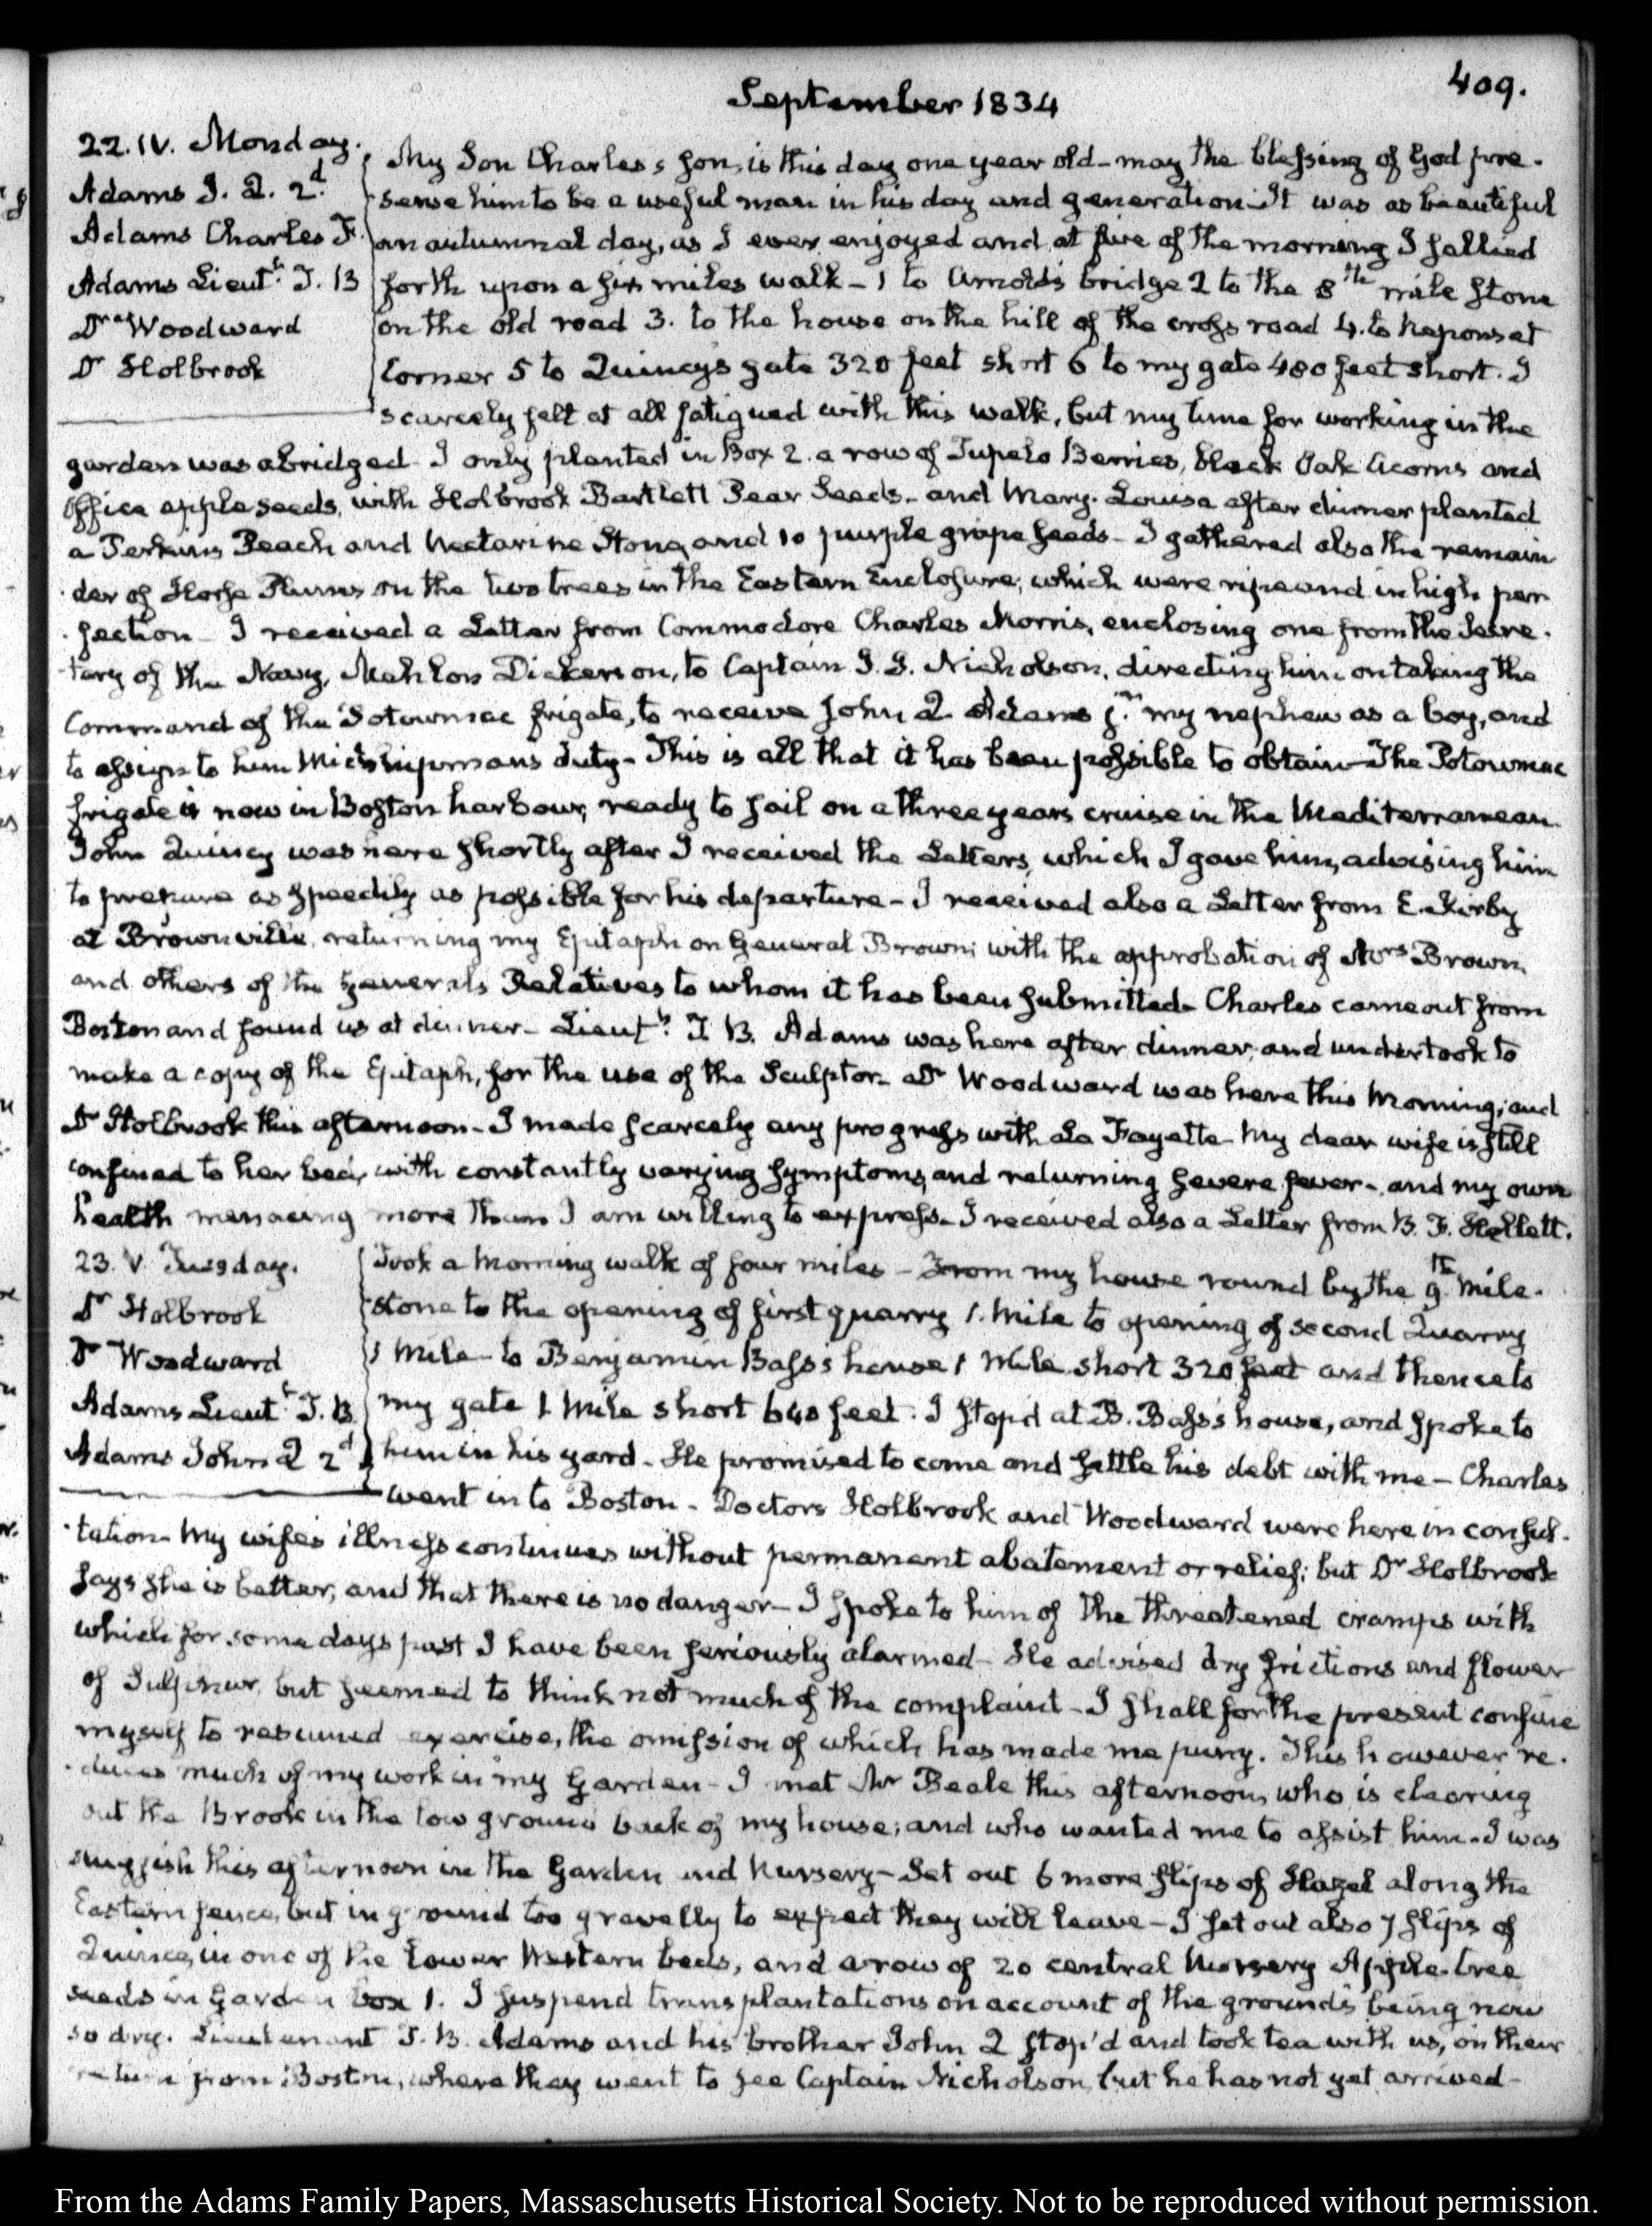 409.
September 1834
22. IV. Monday.
Adams J. Q. 2d.
Adams Charles F.
Adams Lieutt. T. B
Dr Woodward
Dr Holbrook
My Son Charles's son, is this day one year old - may the blessing of God pre-
serve him to be a useful man in his day and generation - It was as beautiful
an autumnal day, as I ever enjoyed and at five of the morning I sallied
forth upon a six miles walk - 1 to Arnold's bridge 2 to the 8th mile stone
on the old road 3. to the house on the hill of the cross road 4. to Neponset
Corner 5 to Quincy's gate 320 feet short 6 to my gate 480 feet short. I
scarcely felt at all fatigued with this walk, but my time for working in the
garden was abridged - I only planted in Box 2. a row of Tupelo Berries, black Oak Acorns and
Office apple seeds, with Holbrook Bartlett Pear Seeds - and Mary-Louisa after dinner planted
a Perkins Peach and Nectarine Stone, and 10 purple grape seeds - I gathered also the remain
der of Horse Plums on the two trees in the Eastern Enclosure; which were ripe and in high per
fection - I received a Letter from Commodore Charles Morris, enclosing one from the Secre-
tary of the Navy, Mahlon Dickerson, to Captain J. J. Nicholson, directing him on taking the
Command of the Potowmac frigate, to receive John Q. Adams jr. my nephew as a boy, and
to assign to him Midshipmans duty - This is all that it has been possible to obtain - The Potowmac
frigate is now in Boston harbour, ready to sail on a three years cruise in the Mediterranean.
John Quincy was here shortly after I received the Letters, which I gave him, advising him
to prepare as speedily as possible for his departure - I received also a Letter from E. Kirby
at Brownville, returning my Epitaph on General Brown; with the approbation of Mrs Brown,
and others of the Generals Relatives to whom it has been submitted - Charles came out from
Boston and found us at dinner - Lieutt. T. B. Adams was here after dinner, and undertook to
make a copy of the Epitaph, for the use of the Sculptor - Dr Woodward was here this Morning, and
Dr Holbrook this afternoon - I made scarcely any progress with La Fayette - My dear wife is still
confined to her bed, with constantly varying symptoms, and returning severe fever - and my own
health menacing more than I am willing to express - I received also a Letter from B. F. Hallett.
23. V. Tuesday.
Dr Holbrook
Dr Woodward
Adams Lieutt. T. B
Adams John Q 2d
Took a Morning walk of four miles - From my house round by the 9th Mile-
stone to the opening of first quarry 1. Mile to opening of second Quarry
1 Mile - to Benjamin Bass's house 1 Mile short 320 feet and thence to
my gate 1 Mile short 640 feet. I stop'd at B. Bass's house, and spoke to
him in his yard - He promised to come and settle his debt with me - Charles
went in to Boston - Doctors Holbrook and Woodward were here in consul-
tation - My wife's illness continues without permanent abatement or relief; but Dr Holbrook
says she is better, and that there is no danger - I spoke to him of the threatened cramps with
which for some days past I have been seriously alarmed - He advised dry frictions and flower
of Sulphur, but seemed to think not much of the complaint - I shall for the present confine
myself to resumed exercise, the omission of which has made me pursy. This however re-
duces much of my work in my Garden - I met Mr Beale this afternoon, who is clearing
out the Brook in the low ground back of my house; and who wanted me to assist him - I was
sluggish this afternoon in the Garden and Nursery - Set out 6 more slips of Hazel along the
Eastern fence, but in ground too gravelly to expect they will leave - I set out also 7 slips of
Quince, in one of the lower Western beds, and a row of 20 central Nursery Apple-tree
seeds in Garden box 1. I suspend transplantations on account of the grounds being now
so dry. Lieutenant T. B. Adams and his brother John Q stop'd and took tea with us, on their
return from Boston, where they went to see Captain Nicholson, but he has not yet arrived -
From the Adams Family Papers, Massachusetts Historical Society. Not to be reproduced without permission.